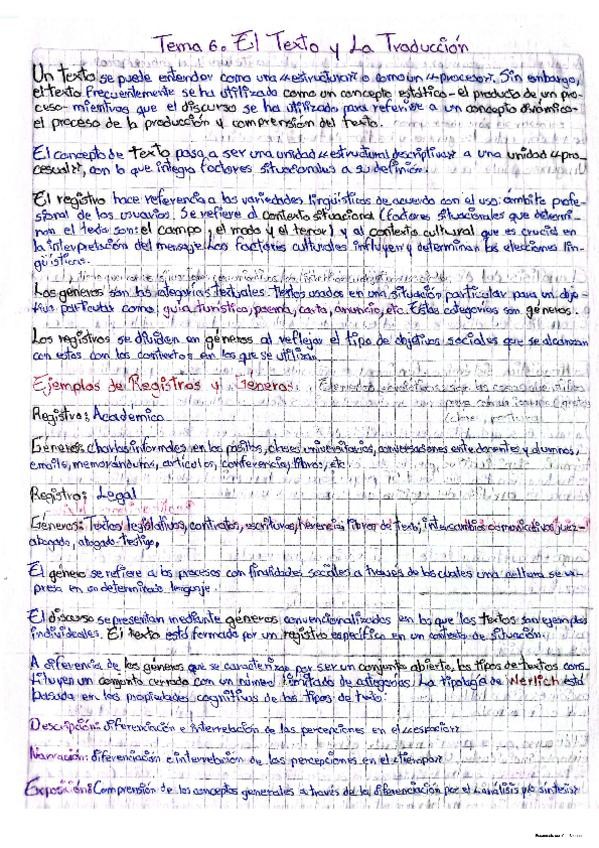 Tema 6. El Texto y La Traducción
Un texto se puede entender como una «estructura» o como un «proceso». Sin embargo,
el texto frecuentemente se ha utilizado como un concepto estático - el producto de un pro-
ceso - mientras que el discurso se ha utilizado para referirse a un concepto dinámico -
el proceso de la producción y comprensión del texto.
El concepto de texto pasa a ser una unidad «estructural descriptiva» a una unidad «pro-
cesual», con lo que integra factores situacionales a su definición.
El registro hace referencia a las variedades lingüísticas de acuerdo con el uso: ámbito profe-
sional de los usuarios. Se refiere al contexto situacional (factores situacionales que determi-
nan el texto son: el campo, el modo y el tenor) y al contexto cultural que es crucial en
la interpretación del mensaje. Los factores culturales influyen y determinan las elecciones lin-
güísticas.
Los géneros son las categorías textuales. Textos usados en una situación particular para un obje-
tivo particular como: guía turística, poema, carta, anuncio, etc. Estas categorías son géneros.
Los registros se dividen en géneros al reflejar el tipo de objetivos sociales que se alcanzan
con estos con los contextos en los que se utilizan.
Ejemplos de Registros y Géneros.
Registro: Academico
Géneros: charlas informales en los pasillos, clases universitarias, conversaciones entre docentes y alumnos,
emails, memorándums, artículos, conferencia, libros, etc
Registro: Legal
Géneros: Textos legislativos, contratos, escrituras, herencia, libros de texto, intercambios comunicativos juez-
abogado, abogado-testigo,
El género se refiere a los procesos con finalidades sociales a través de los cuales una cultura se ex-
presa en su determinado lenguaje.
El discurso se presentan mediante géneros convencionalizados en los que los textos son ejemplos
individuales. El texto está formado por un registro específico en un contexto de situación.
A diferencia de los géneros que se caracterizan por ser un conjunto abierto, los tipos de textos cons-
tituyen un conjunto cerrado con un número limitado de categorías. La tipología de Werlich está
basada en las propiedades cognitivas de los tipos de texto:
Descripción: diferenciación e interrelación de las percepciones en el «espacio»
Narración: diferenciación e interrelación de las percepciones en el «tiempo»
Exposición: Comprensión de los conceptos generales a través de la diferenciación por el análisis y/o síntesis